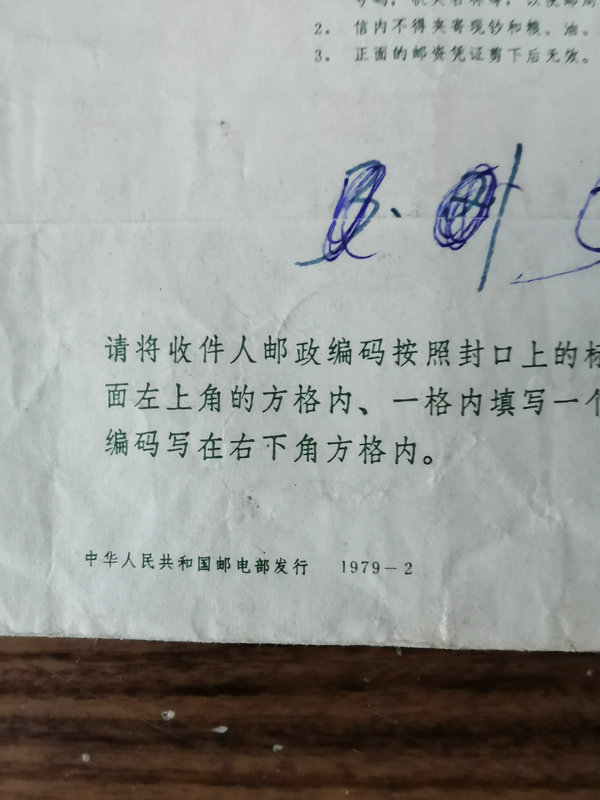 2. 信内不得夹寄现钞和粮、油、
3. 正面的邮资凭证剪下后无效。
请将收件人邮政编码按照封口上的标
面左上角的方格内、一格内填写一个
编码写在右下角方格内。
中华人民共和国邮电部发行 1979-2